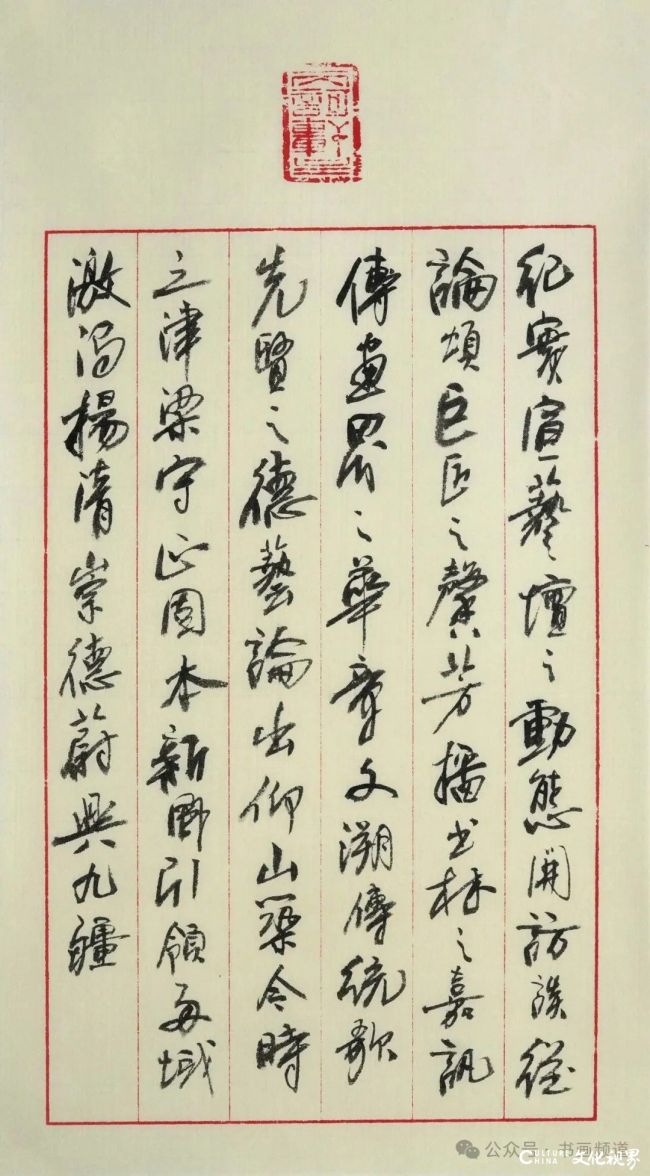 紀實宣藝壇之動態開訪談
論頌巨匠之馨芳播書林之嘉訊
傳畫界之華章文溯傳統歌
先賢之德藝論出仰山築今時
之津梁守正固本新風引領域
激濁揚清崇德蔚興九疆
公众号 · 书画频道
CULTURE CHINA 文化视界